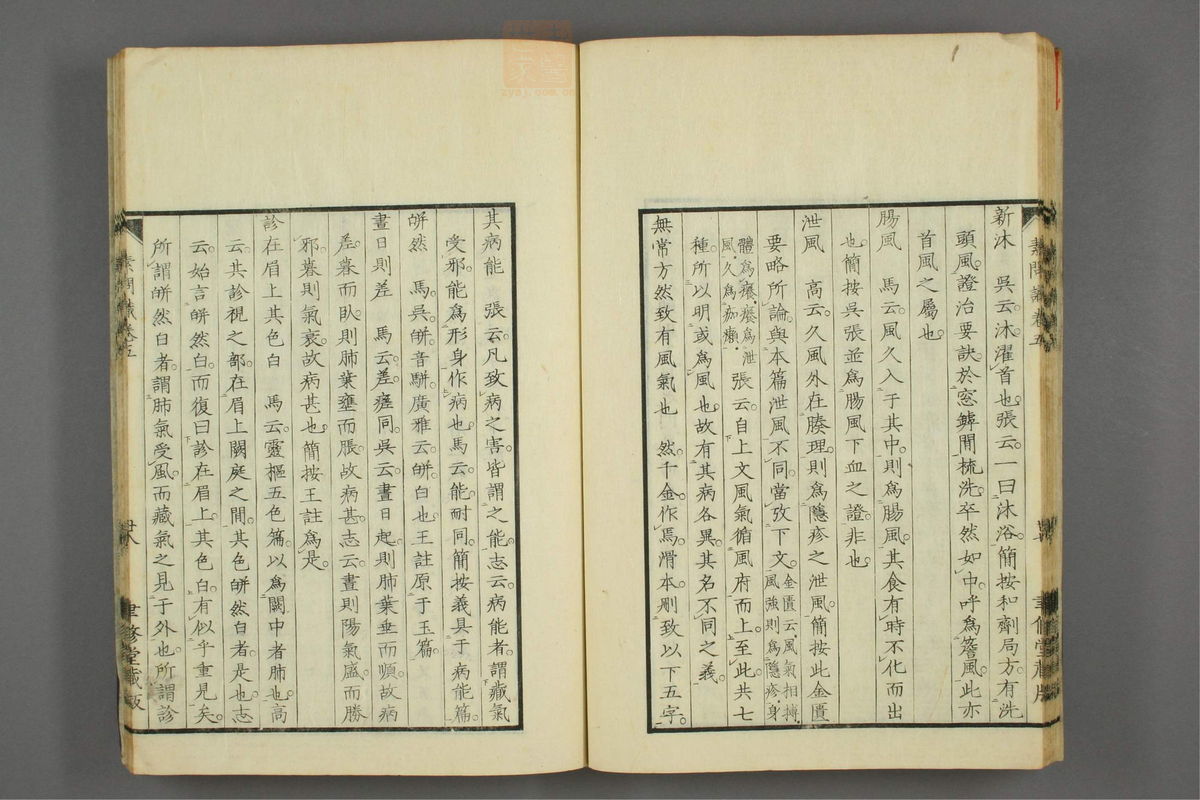 新沐　吳云。沐濯首也。張云。一曰沐浴。簡按和劑局方。有洗
頭風。證治要訣。於窓罅間梳洗。卒然如中。呼為簷風。此亦
首風之屬也。
腸風　馬云。風久入于其中。則為腸風。其食有時不化而出
也。簡按吳張並為腸風下血之證。非也。
泄風　高云。久風外在腠理。則為隱疹之泄風。簡按此金匱
要略所論。與本篇泄風不同。當攷下文。金匱云。風氣相摶。風強則為隱疹。身
體為癢。癢為泄風。久為痂癩。張云。自上文風氣循風府而上。至此共七
種。所以明或為風也。故有其病各異。其名不同之義。
無常方然致有風氣也　然。千金作焉。滑本刪致以下五字。
素問識卷五
聿修堂藏版
其病能　張云。凡致病之害。皆謂之能。志云。病能者。謂藏氣
受邪。能為形身作病也。馬云。能。耐同。簡按義具于病能篇。
皏然　馬吳。皏音駢。廣雅云。皏白也。王註原于玉篇。
晝日則差　馬云。差。瘥同。吳云。晝日起。則肺葉垂而順。故病
差。暮而臥。則肺葉壅而脹。故病甚。志云。晝則陽氣盛而勝
邪。暮則氣衰。故病甚也。簡按王註為是。
診在眉上其色白　馬云。靈樞五色篇。以為闕中者肺也。高
云。其診視之部。在眉上闕庭之間。其色皏然白者是也。志
云。始言皏然白。而復曰診在眉上。其色白。有似乎重見矣。
所謂皏然白者。謂肺氣受風。而藏氣之見于外也。所謂診
素問識卷五
聿修堂藏版